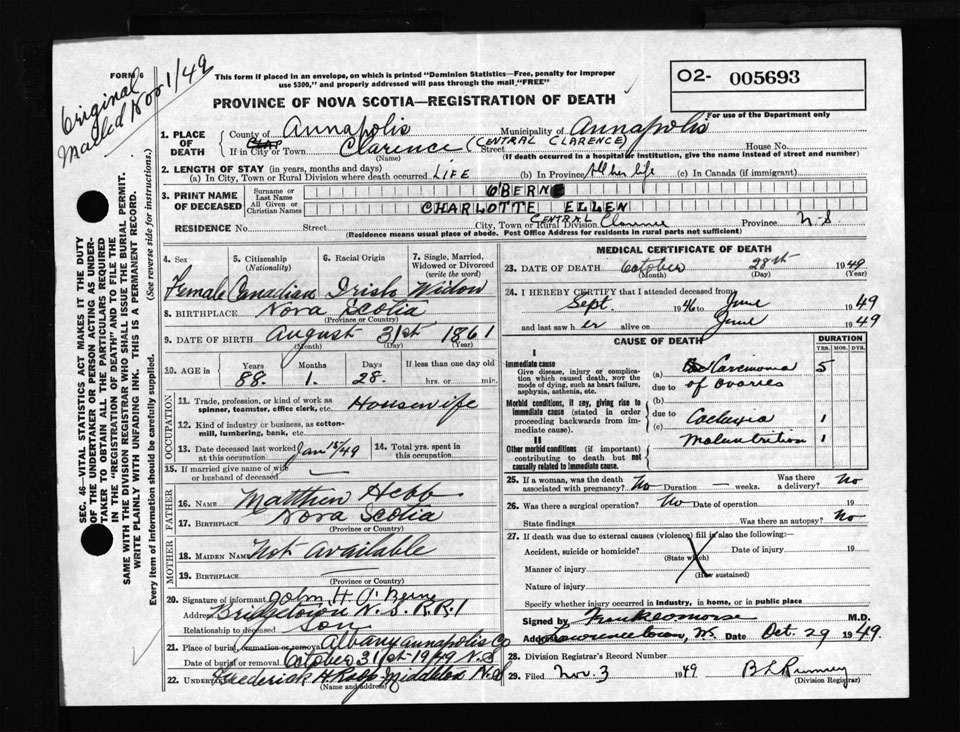 FORM 6
Original
Mailed Nov 1/49
This form if placed in an envelope, on which is printed "Dominion Statistics—Free, penalty for improper
use $300," and properly addressed will pass through the mail "FREE"
O2- 005693
For use of the Department only
PROVINCE OF NOVA SCOTIA—REGISTRATION OF DEATH
1. PLACE OF DEATH
County of Annapolis Municipality of Annapolis
If in City or Town Clarence (CENTRAL CLARENCE) Street House No.
(Name) (If death occurred in a hospital or institution, give the name instead of street and number)
2. LENGTH OF STAY (in years, months and days)
(a) In City, Town or Rural Division where death occurred LIFE (b) In Province All her life (c) In Canada (if immigrant)
3. PRINT NAME OF DECEASED
Surname or Last Name O'BERNE
All Given or Christian Names CHARLOTTE ELLEN
RESIDENCE No. Street City, Town or Rural Division CENTRAL Clarence Province N.S
(Residence means usual place of abode. Post Office Address for residents in rural parts not sufficient)
SEC. 46—VITAL STATISTICS ACT MAKES IT THE DUTY
OF THE UNDERTAKER OR PERSON ACTING AS UNDER-
TAKER TO OBTAIN ALL THE PARTICULARS REQUIRED
IN THE "REGISTRATION OF DEATH" AND TO FILE THE
SAME WITH THE DIVISION REGISTRAR WHO SHALL ISSUE THE BURIAL PERMIT.
WRITE PLAINLY WITH UNFADING INK. THIS IS A PERMANENT RECORD.
Every item of information should be carefully supplied. (See reverse side for instructions.)
4. Sex Female
5. Citizenship (Nationality) Canadian
6. Racial Origin Irish
7. Single, Married, Widowed or Divorced (write the word) Widow
8. BIRTHPLACE Nova Scotia
(Province or Country)
9. DATE OF BIRTH August 31st 1861
(Month) (Day) (Year)
10. AGE in Years 88. Months 1. Days 28. If less than one day old hrs. or min.
OCCUPATION
11. Trade, profession, or kind of work as spinner, teamster, office clerk, etc. Housewife
12. Kind of industry or business, as cotton-mill, lumbering, bank, etc.
13. Date deceased last worked at this occupation Jan 15/49
14. Total yrs. spent in this occupation
15. If married give name of wife or husband of deceased —
FATHER
16. NAME Matthew Hebb
17. BIRTHPLACE Nova Scotia
(Province or Country)
MOTHER
18. MAIDEN NAME Not Available
19. BIRTHPLACE —
(Province or Country)
20. Signature of informant John H. O'Berne
Address Bridgetown N.S. R.R.1
Relationship to deceased Son
21. Place of burial, cremation or removal Albany Annapolis Co
Date of burial or removal October 31st-1949 N.S
22. UNDERTAKER Frederick H Roop Middleton N.S
(Name and address)
MEDICAL CERTIFICATE OF DEATH
23. DATE OF DEATH October 28st 1949
(Month) (Day) (Year)
24. I HEREBY CERTIFY that I attended deceased from
Sept. 1946 to June 1949
and last saw her alive on June 1949
CAUSE OF DEATH
DURATION
YRS. MOS. DYS.
I
Immediate cause
Give disease, injury or complication which caused death, NOT the mode of dying, such as heart failure, asphyxia, asthenia, etc.
(a) Carcinoma 5
due to of Ovaries
Morbid conditions, if any, giving rise to immediate cause (stated in order proceeding backwards from immediate cause).
(b)
due to
(c) Cachexia 1
II
Other morbid conditions (if important) contributing to death but not causally related to immediate cause.
Malnutrition 1
25. If a woman, was the death associated with pregnancy? No Duration — weeks. Was there a delivery? No
26. Was there a surgical operation? No Date of operation 19
State findings Was there an autopsy? No
27. If death was due to external causes (violence) fill in also the following:—
Accident, suicide or homicide? Date of injury 19
(State which)
Manner of injury
(How sustained)
Nature of injury
Specify whether injury occurred in industry, in home, or in public place
Signed by Frank Morse M.D.
Address Lawrencetown, N.S. Date Oct. 29 1949.
28. Division Registrar's Record Number
29. Filed Nov. 3 1949
(Division Registrar)